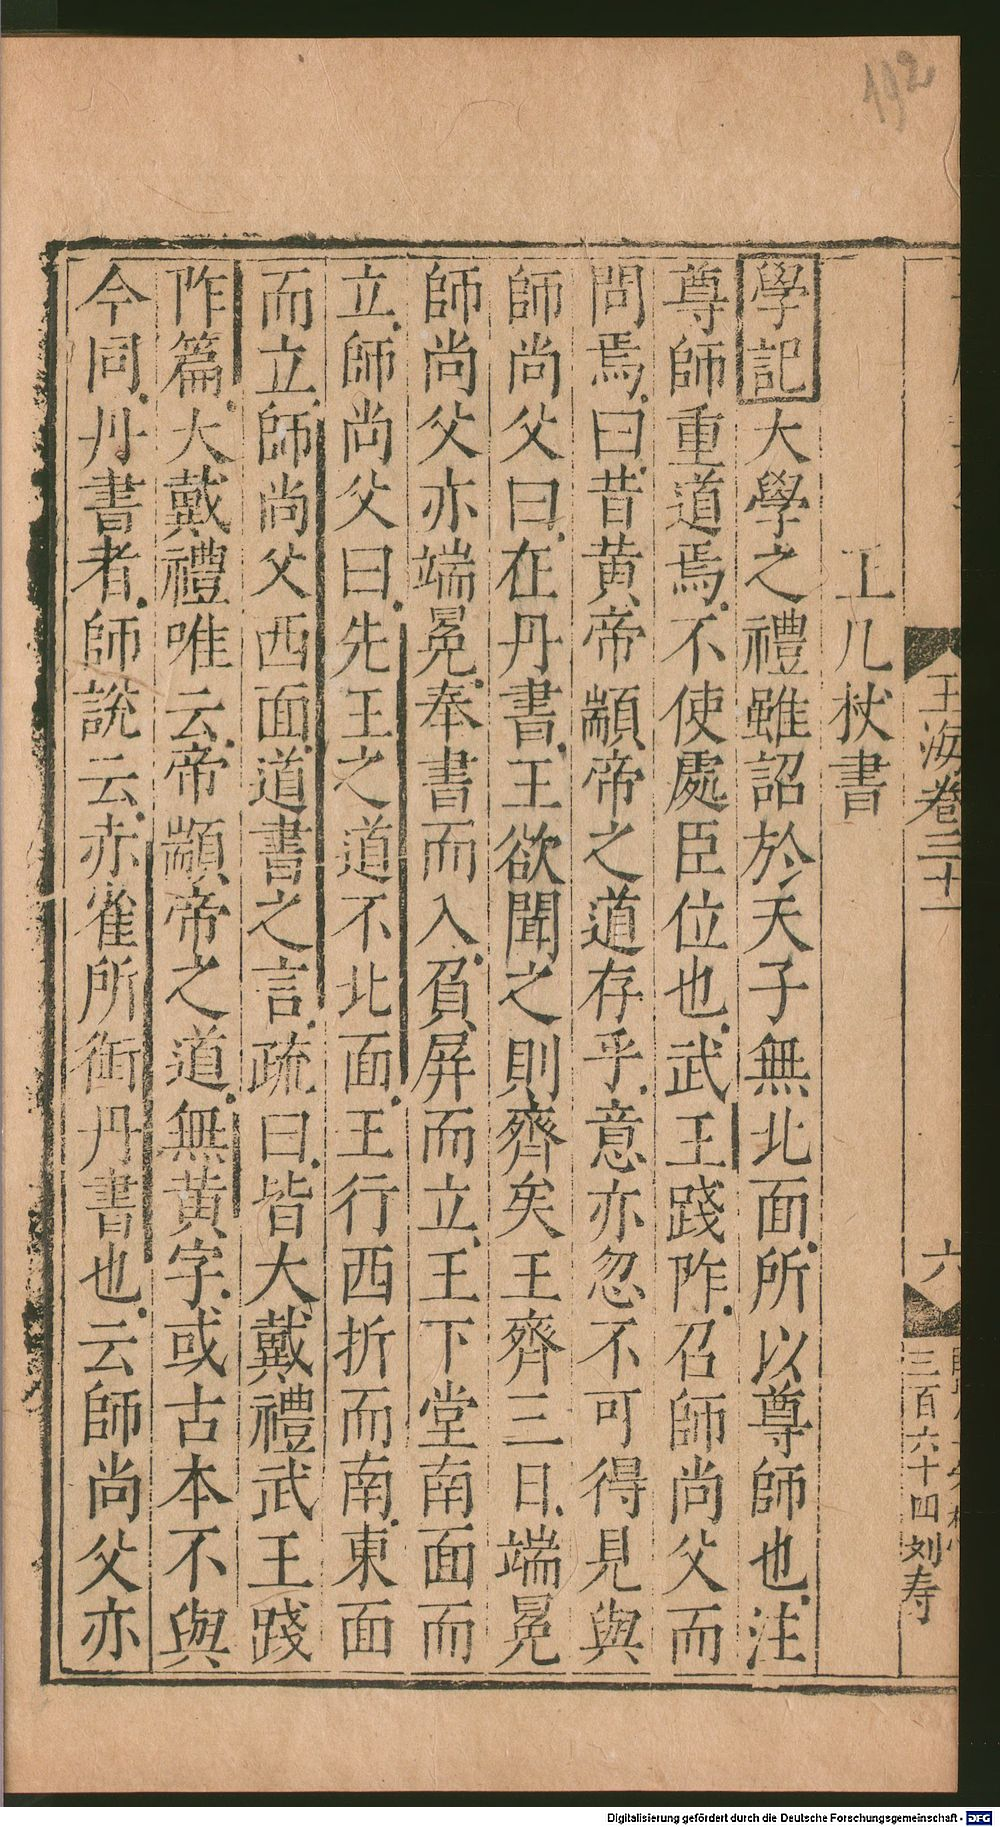 192
玉海卷三十一
六
三百六十四刘寿
上几杖書
學記大學之禮雖詔於天子無北面所以尊師也注
尊師重道焉不使處臣位也武王踐阼召師尚父而
問焉曰昔黄帝顓帝之道存乎意亦忽不可得見與
師尚父曰在丹書王欲聞之則齊矣王齊三日端冕
師尚父亦端冕奉書而入負屏而立王下堂南面而
立師尚父曰先王之道不北面王行西折而南東面
而立師尚父西面道書之言疏曰皆大戴禮武王踐
阼篇大戴禮唯云帝顓帝之道無黄字或古本不與
今同丹書者師說云赤雀所銜丹書也云師尚父亦
Digitalisierung gefördert durch die Deutsche Forschungsgemeinschaft - DFG